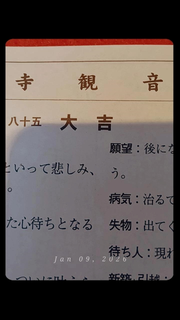 寺観音
八十五 大吉
願望：後にな
う。
病気：治るで
失物：出てく
待ち人：現れ
新築・引越：
といって悲しみ、
。
た心待ちとなる
Jan 09, 2026